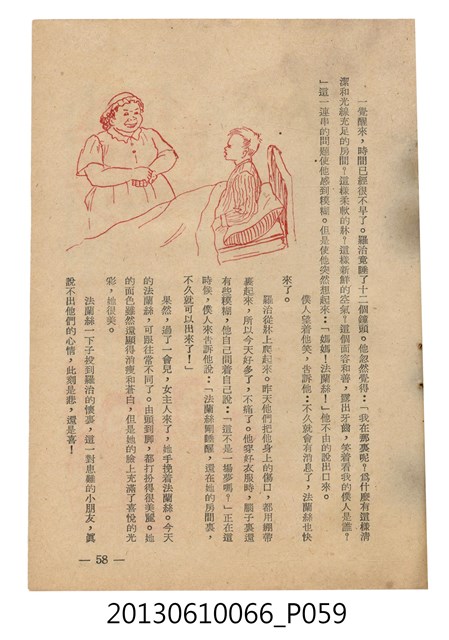 一覺醒來，時間已經很不早了。羅治竟睡了十二個鐘頭。他忽然覺得：「我在那裏呢？爲什麼有這樣清
潔和光線充足的房間？這樣柔軟的牀？這樣新鮮的空氣？這個面容和善，露出牙齒，笑着看我的僕人是誰？
」這一連串的問題使他感到模糊。但是使他突然想起來：「媽媽！法蘭絲！」他不由的說出口來。
僕人望着他笑，告訴他：不久就會有消息了，法蘭絲也快
來了。
羅治從牀上爬起來。昨天他們把他身上的傷口，都用綳帶
裹起來，所以今天好多了，不痛了。他穿好衣服時，腦子裏還
有些模糊，他自己問着自己說：「這不是一場夢嗎？」正在這
時候，僕人來告訴他說：「法蘭絲剛睡醒，還在她的房間裏，
不久就可以出來了！」
果然，過了一會兒，女主人來了，她手挽着法蘭絲。今天
的法蘭絲，可跟往常不同了。由頭到脚，都打扮得很美麗。她
的面色雖然還顯得消瘦和蒼白，但是她的臉上充滿了喜悅的光
彩，她很美。
法蘭絲一下子投到羅治的懷裏，這一對患難的小朋友，眞
說不出他們的心情，此刻是悲，還是喜！
— 58 —
20130610066_P059